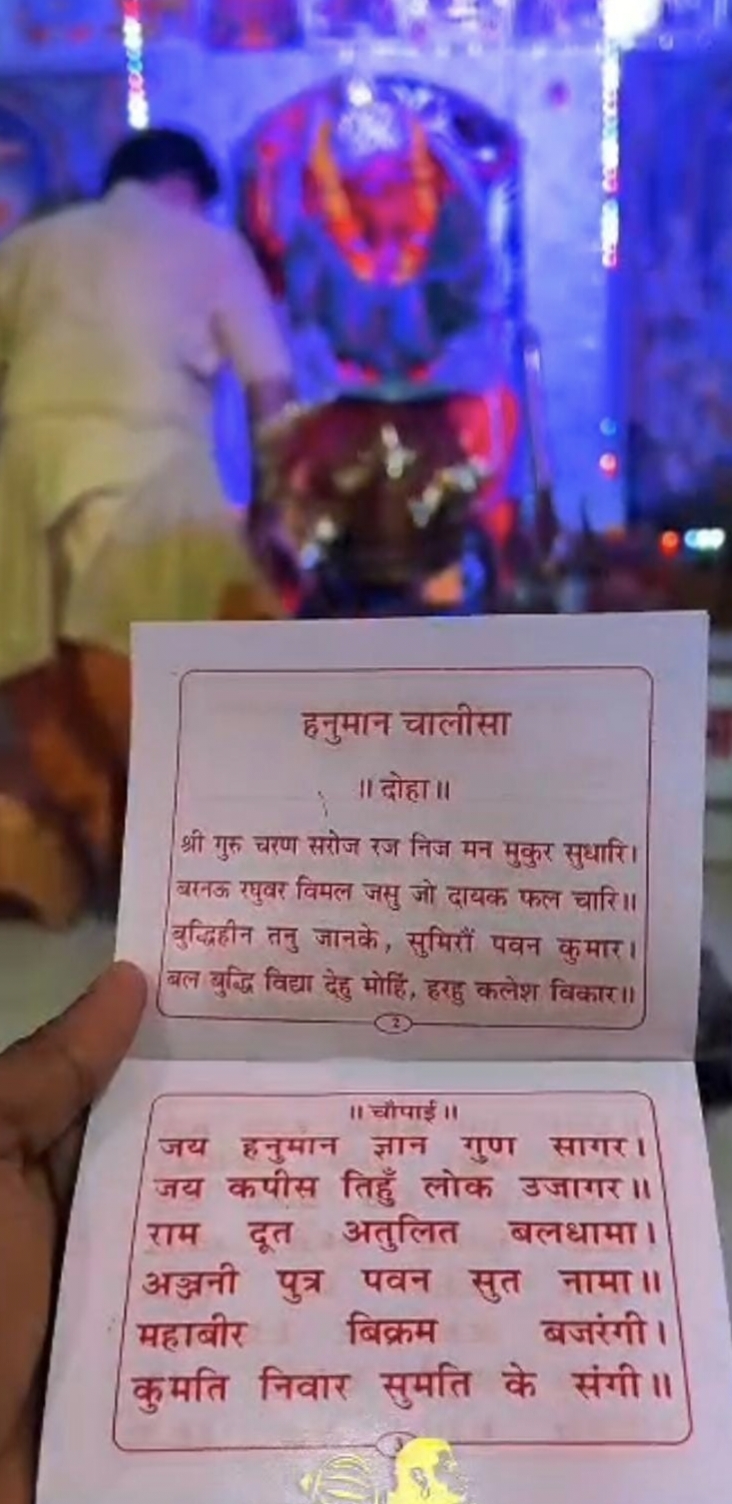 हनुमान चालीसा
॥ दोहा ॥
श्री गुरु चरण सरोज रज निज मन मुकुर सुधारि।
बरनऊ रघुवर विमल जसु जो दायक फल चारि॥
बुद्धिहीन तनु जानके, सुमिरौं पवन कुमार।
बल बुद्धि विद्या देहु मोहिं, हरहु कलेश विकार॥
2
॥ चौपाई ॥
जय हनुमान ज्ञान गुण सागर।
जय कपीस तिहुँ लोक उजागर॥
राम दूत अतुलित बलधामा।
अञ्जनी पुत्र पवन सुत नामा॥
महाबीर बिक्रम बजरंगी।
कुमति निवार सुमति के संगी॥
3